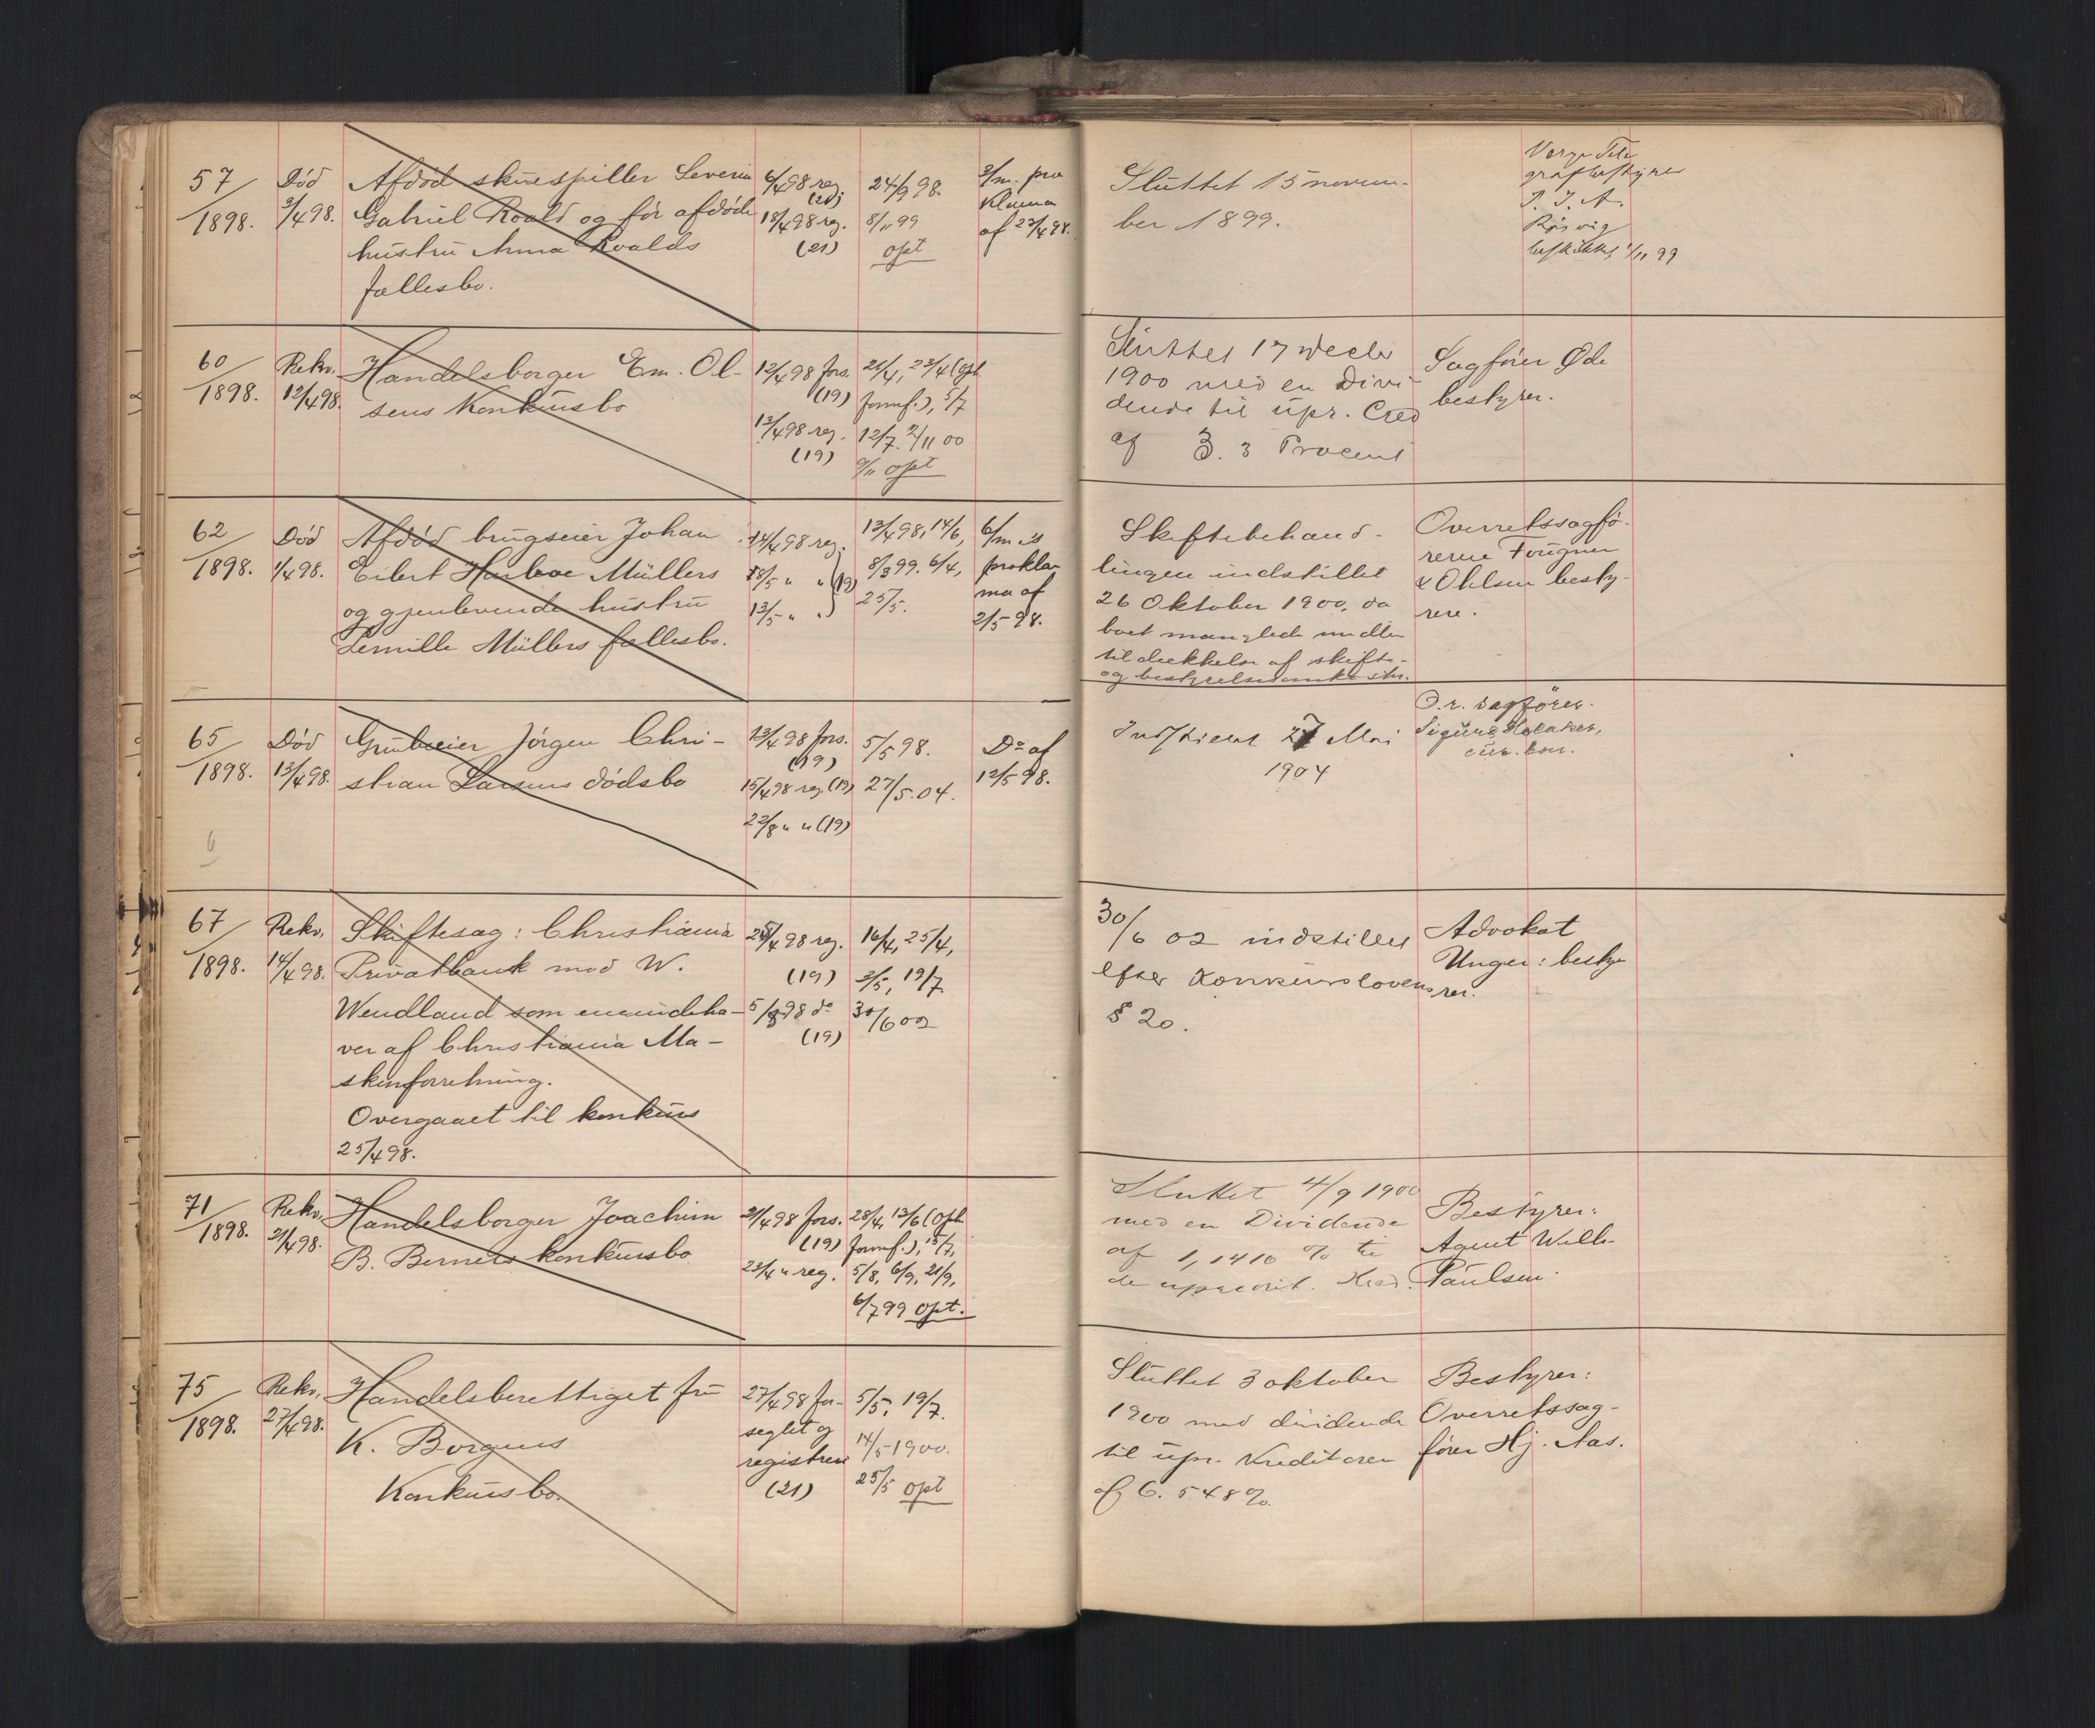 57/1898. Død 3/4 98. Afdød skuespiller Severin
Gabriel Roald og før afdøde
hustru Anna Roalds
fællesbo.
6/4 98 reg.
(21)
18/4 98 reg.
(21)
24/9 98.
8/11 99
opt
3/m. pro
klama
af 23/4 98.
Sluttet 15 novem-
ber 1899.
Verge Tele
grafbestyrer
P. J. A.
Rörvig
beskikket 1/11 99
60/1898. Rekv. 12/4 98. Handelsborger Em. Ol-
sens Konkursbo
12/4 98 fors.
(19)
13/4 98 reg.
(19)
21/4, 23/4 (oph
formf.), 5/7
12/7. 2/11 00
9/11 opt
Sluttet 17 decbr
1900 med en Divi-
dende til upr. Cred
af 3. 3 Procent
Sagfører Øde
bestyrer.
62/1898. Død 1/4 98. Afdød brugseier Johan
Eilert Müllers
og gjenlevende hustru
Müllers fællesbo.
14/4 98 reg.
18/5 " " (19)
13/5 " "
13/4 98, 14/6,
8/3 99. 6/4,
25/5.
6/m.s
prokla
ma af
2/5 98.
Skiftebehand-
lingen indstillet
26 Oktober 1900, da
boet manglede midler
til dækkelse af skifte-
og bestyrelsesomkostn.
Overretssagfø-
rerne Fougner
& Ohlsen besty-
rere.
65/1898. Død 13/4 98. Grubeeier Jörgen Chri-
stian Larsens dødsbo
13/4 98 fors.
(19)
15/4 98 reg. (19)
22/8 " " (19)
5/5 98.
27/5. 04.
Do af
12/5 98.
Indstillet 27 Mai
1904
O.r. sagfører
Sigurd
cur. bon.
6
67/1898. Rekv. 14/4 98. Skiftesag: Christiania
Privatbank mod W.
Wendland som eneindeha-
ver af Christiania Ma-
skinforretning.
Overgaaet til konkurs
25/4 98.
25/4 98 reg.
(19)
5/8 98 do
(19)
16/4, 25/4,
3/5, 19/7.
30/6 02
30/6 02 indstillet
efter Konkurslovens
§ 20.
Advokat
Unger: besty
rer.
71/1898. Rekv. 21/4 98. Handelsborger Joachim
B. Berners konkursbo
21/4 98 fors.
(19)
23/4 " reg.
28/4, 13/6 (oph
formf.), 15/7,
5/8, 6/9, 21/9,
6/7 99 opt.
Sluttet 4/9 1900
med en Dividende
af 1,1410 % til
de uprivit. Kred.
Bestyrer:
Agent Wilh.
Paulsen.
75/1898. Rekv. 27/4 98. Handelsberettiget fru
K. Borgens
Konkursbo.
27/4 98 for-
seglet og
registrere
(21)
5/5, 19/7.
14/5 1900.
25/5 opt
Sluttet 3 oktober
1900 med dividende
til upr. Kreditorer
af 6. 548%.
Bestyrer:
Overretssag-
fører Hj. Aas.